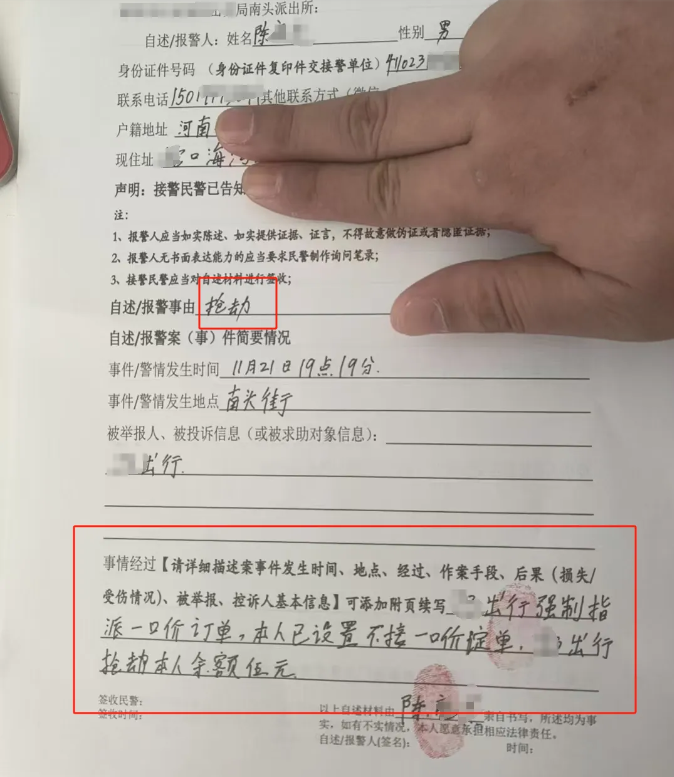 局南头派出所：
自述/报警人：姓名陈 性别 男
身份证件号码（身份证件复印件交接警单位）41023
联系电话 150 其他联系方式（微信
户籍地址 河南
现住址 口海
声明：接警民警已告知
注：
1、报警人应当如实陈述、如实提供证据、证言，不得故意做伪证或者隐匿证据；
2、报警人无书面表达能力的应当要求民警制作询问笔录；
3、接警民警应当对自述材料进行签收；
自述/报警事由 抢劫
自述/报警案（事）件简要情况
事件/警情发生时间 11月21日19点19分.
事件/警情发生地点 南头街
被举报人、被投诉信息（或被求助对象信息）：
出行.
事情经过【请详细描述案事件发生时间、地点、经过、作案手段、后果（损失/
受伤情况）、被举报、控诉人基本信息】可添加附页续写 出行强制指
派一口价订单，本人已设置不接一口价定单， 出行
抢劫本人余额伍元
签收民警：
签收时间：
以上自述材料由 陈 亲自书写，所述均为事
实，如有不实情况，本人愿意承担相应法律责任。
自述/报警人(签名)： 时间：